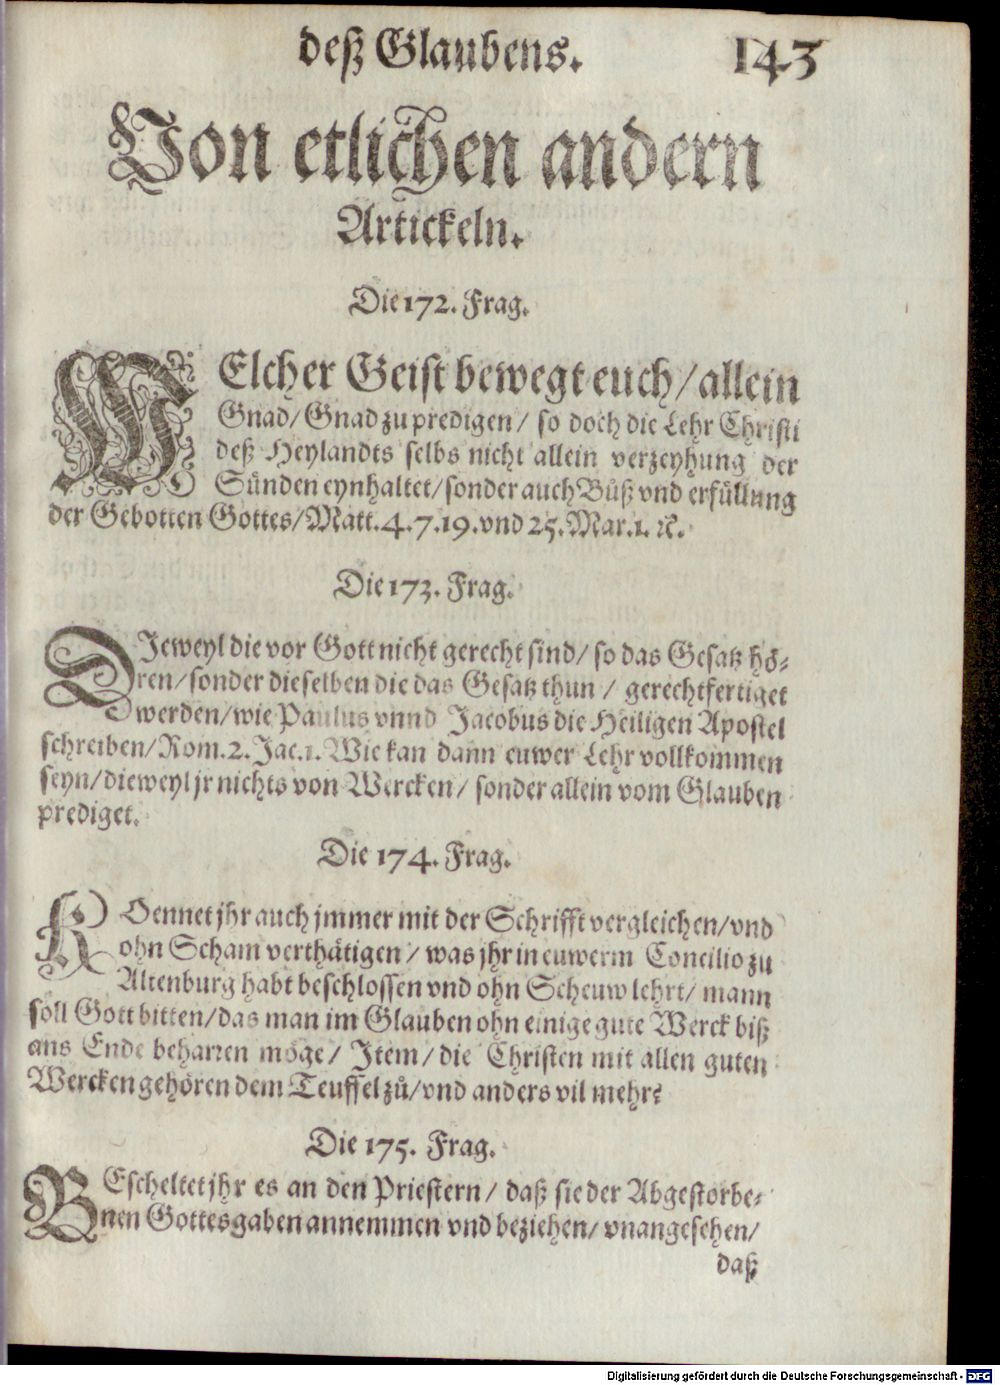 deß Glaubens.
143
Von etlichen andern
Artickeln.
Die 172. Frag.
WElcher Geist bewegt euch/ allein
Gnad/ Gnad zu predigen/ so doch die Lehr Christi
deß Heylandts selbs nicht allein verzeyhung der
Sünden eynhaltet/ sonder auch Bůß vnd erfüllung
der Gebotten Gottes/ Matt. 4. 7. 19. vnd 25. Mar. 1. ꝛc.
Die 173. Frag.
DJeweyl die vor Gott nicht gerecht sind/ so das Gesatz hö-
ren/ sonder dieselben die das Gesatz thun/ gerechtfertiget
werden/ wie Paulus vnnd Jacobus die Heiligen Apostel
schreiben/ Rom. 2. Jac. 1. Wie kan dann euwer Lehr vollkommen
seyn/ dieweyl jr nichts von Wercken/ sonder allein vom Glauben
prediget.
Die 174. Frag.
KOennet jhr auch jmmer mit der Schrifft vergleichen/ vnd
ohn Scham verthätigen/ was jhr in euwerm Concilio zu
Altenburg habt beschlossen vnd ohn Scheuw lehrt/ mann
söll Gott bitten/ das man im Glauben ohn einige gute Werck biß
ans Ende beharren möge/ Jtem/ die Christen mit allen guten
Wercken gehören dem Teuffel zů/ vnd anders vil mehr?
Die 175. Frag.
BEscheltet jhr es an den Priestern/ daß sie der Abgestorbe-
nen Gottesgaben annemmen vnd beziehen/ vnangesehen/
daß
Digitalisierung gefördert durch die Deutsche Forschungsgemeinschaft - DFG